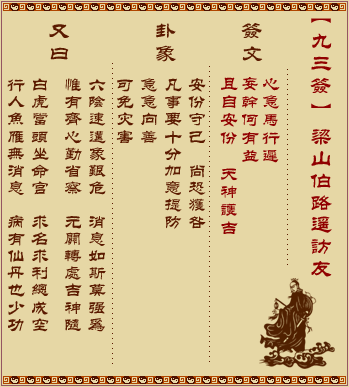 【九三簽】 梁山伯路遙訪友
簽文
心急馬行遲
妄幹何有益
且自安份 天神護吉
卦象
安份守己 尚恐獲咎
凡事要十分加意提防
急急向善
可免災害
又曰
六陰速艱危 消息如斯莫強為
惟有齊心勤省察 元關轉處吉神隨
白虎當頭坐命宮 求名求利總成空
行人魚雁無消息 病有仙丹也少功